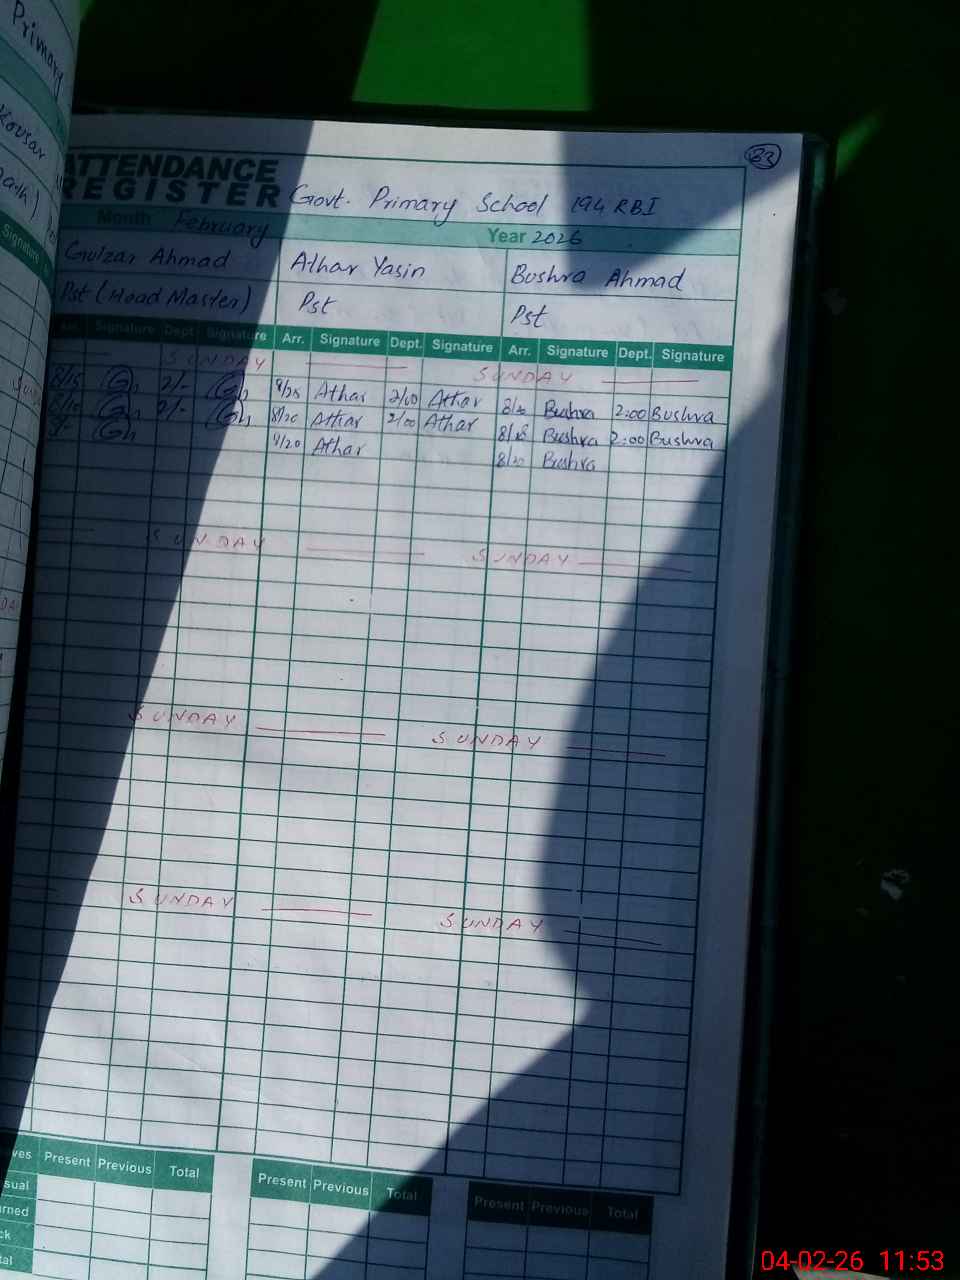 Primary
Kousar
Signature
33
ATTENDANCE
REGISTER
Govt. Primary School 194 RBI
Month February Year 2026
Gulzar Ahmad Athar Yasin Bushra Ahmad
Pst (Head Master) Pst Pst
Arr. Signature Dept. Signature Arr. Signature Dept. Signature Arr. Signature Dept. Signature
SUNDAY SUNDAY
8/15 2/- 8/25 Athar 2/00 Athar 8/20 Bushra 2:00 Bushra
8/10 2/- 8/20 Athar 2/00 Athar 8/18 Bushra 2:00 Bushra
8/20 Athar 8/20 Bushra
SUNDAY SUNDAY
SUNDAY SUNDAY
SUNDAY SUNDAY
Present Previous Total Present Previous Total Present Previous Total
04-02-26 11:53